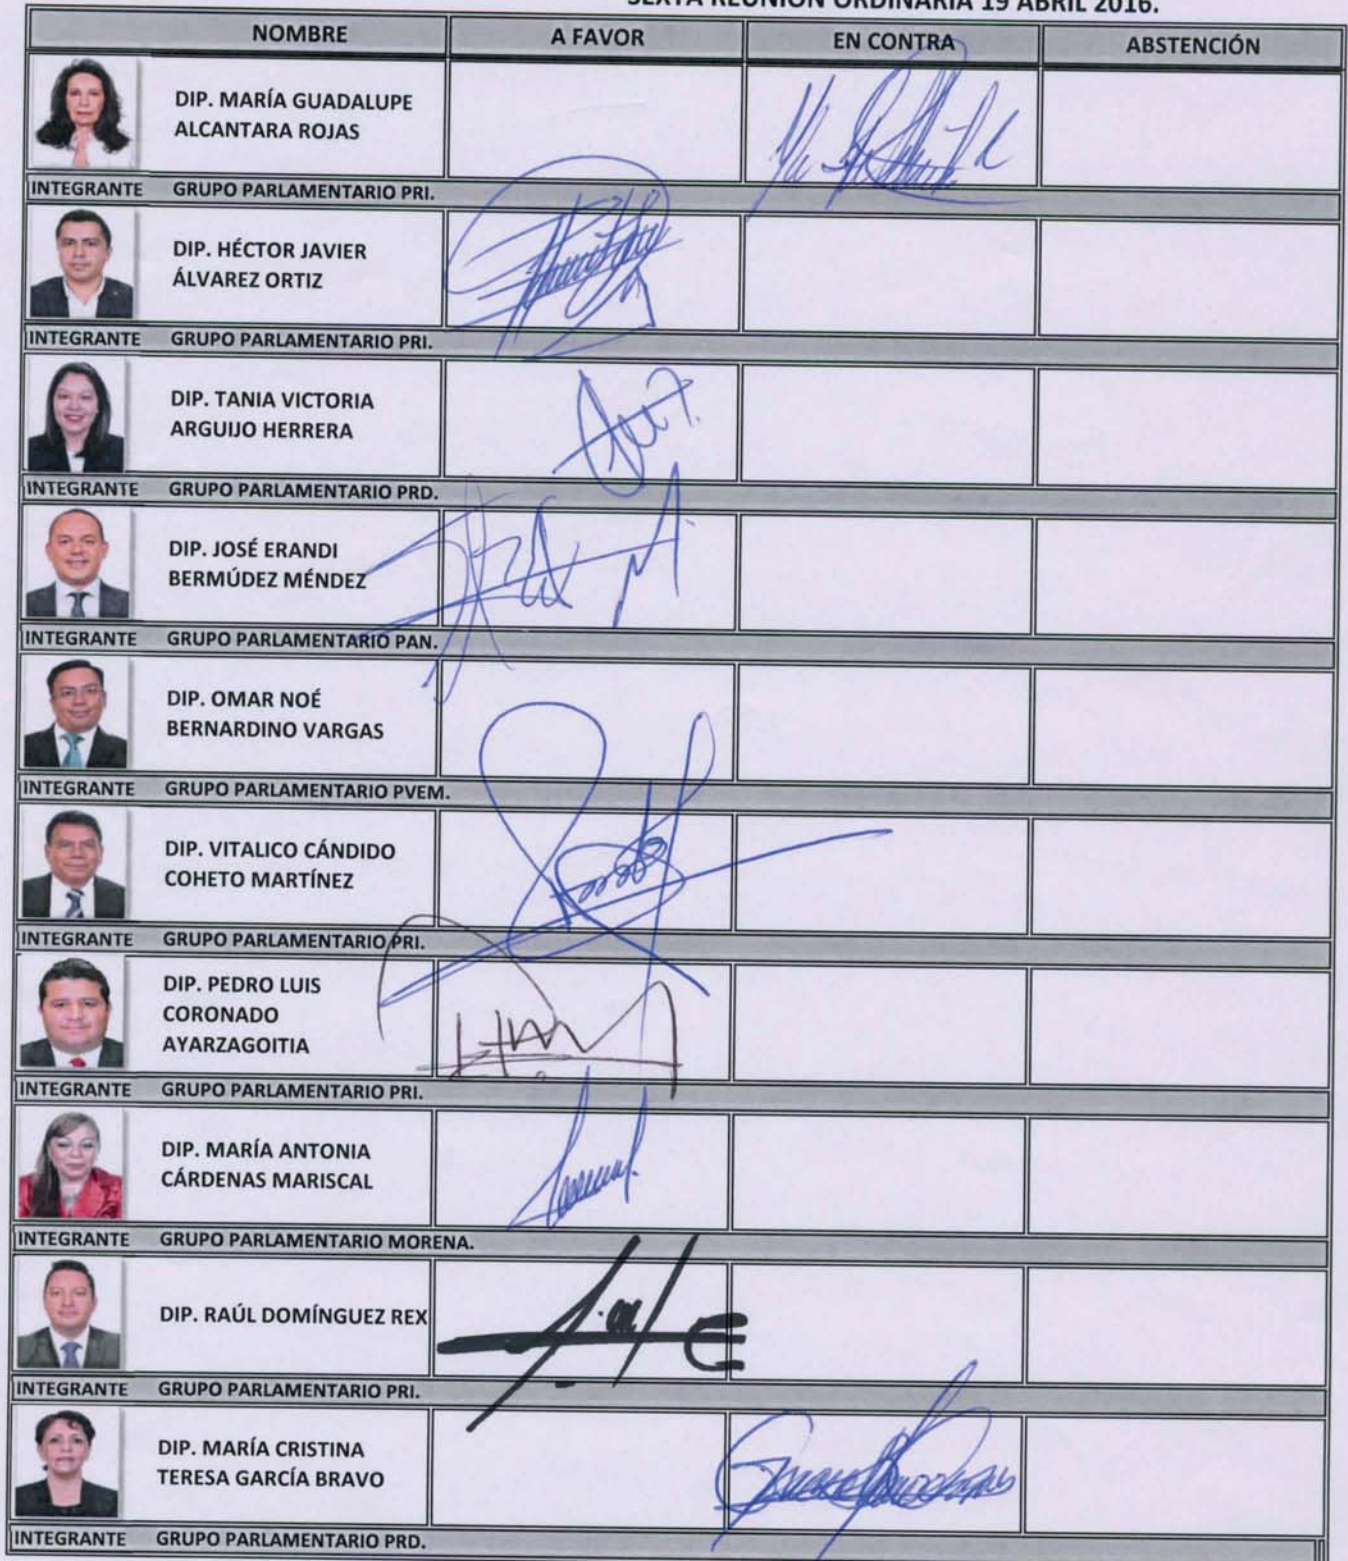 SEXTA REUNIÓN ORDINARIA 19 ABRIL 2016.
NOMBRE A FAVOR EN CONTRA ABSTENCIÓN
DIP. MARÍA GUADALUPE
ALCANTARA ROJAS
INTEGRANTE GRUPO PARLAMENTARIO PRI.
DIP. HÉCTOR JAVIER
ÁLVAREZ ORTIZ
INTEGRANTE GRUPO PARLAMENTARIO PRI.
DIP. TANIA VICTORIA
ARGUIJO HERRERA
INTEGRANTE GRUPO PARLAMENTARIO PRD.
DIP. JOSÉ ERANDI
BERMÚDEZ MÉNDEZ
INTEGRANTE GRUPO PARLAMENTARIO PAN.
DIP. OMAR NOÉ
BERNARDINO VARGAS
INTEGRANTE GRUPO PARLAMENTARIO PVEM.
DIP. VITALICO CÁNDIDO
COHETO MARTÍNEZ
INTEGRANTE GRUPO PARLAMENTARIO PRI.
DIP. PEDRO LUIS
CORONADO
AYARZAGOITIA
INTEGRANTE GRUPO PARLAMENTARIO PRI.
DIP. MARÍA ANTONIA
CÁRDENAS MARISCAL
INTEGRANTE GRUPO PARLAMENTARIO MORENA.
DIP. RAÚL DOMÍNGUEZ REX
INTEGRANTE GRUPO PARLAMENTARIO PRI.
DIP. MARÍA CRISTINA
TERESA GARCÍA BRAVO
INTEGRANTE GRUPO PARLAMENTARIO PRD.